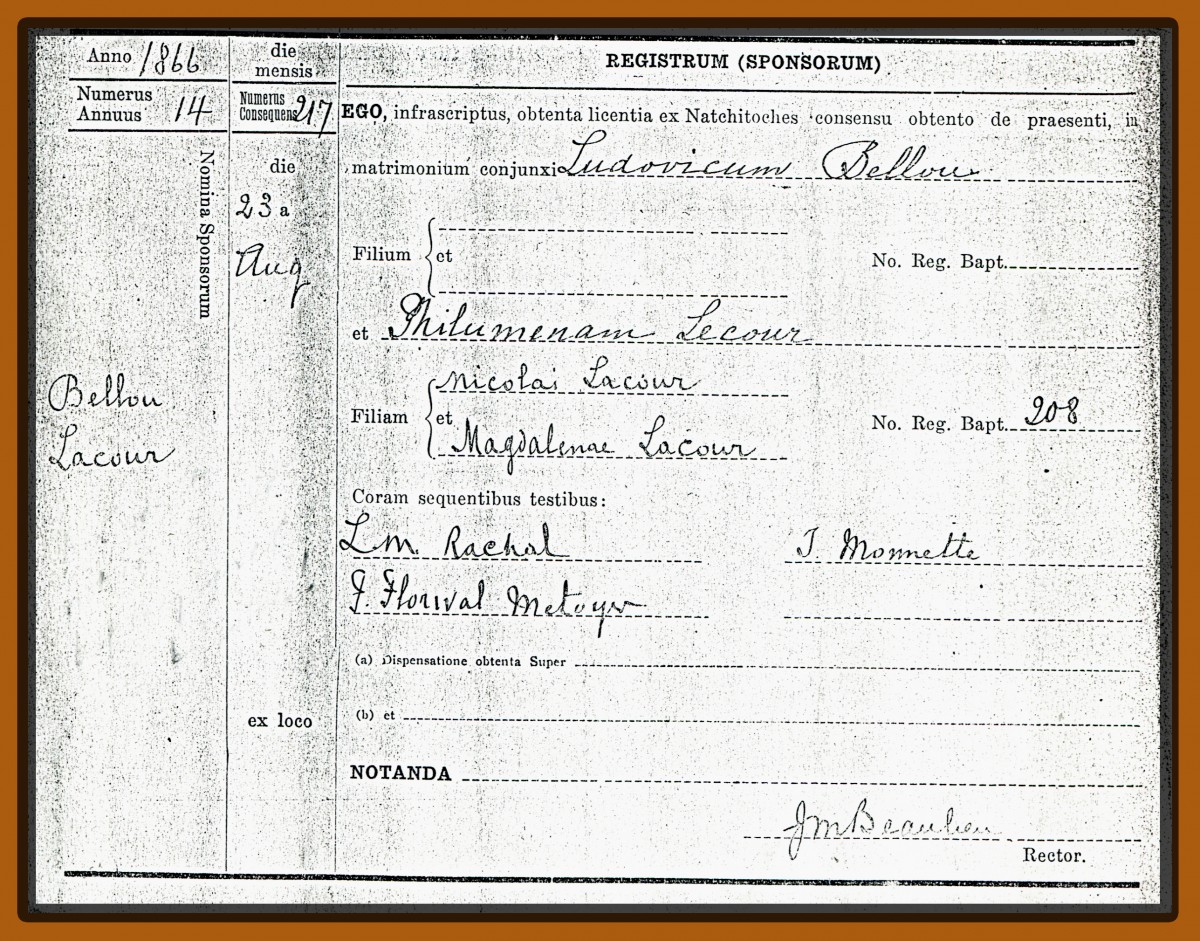 Anno 1866
die
mensis
REGISTRUM (SPONSORUM)
Numerus
Annuus 14
Numerus
Consequens 217
EGO, infrascriptus, obtenta licentia ex Natchitoches consensu obtento de praesenti, in
matrimonium conjunxi Ludovicum Bellou
Nomina Sponsorum
die
23 a
Aug
Filium
et
No. Reg. Bapt.
et Philumenam Lecour
Bellou
Lacour
Filiam
Nicolai Lacour
et
Magdalenae Lacour
No. Reg. Bapt. 208
Coram sequentibus testibus:
L.M. Rachal
J. Monnette
F. Florival Metoyer
(a) Dispensatione obtenta Super
ex loco
(b) et
NOTANDA
JM Beaulieu
Rector.